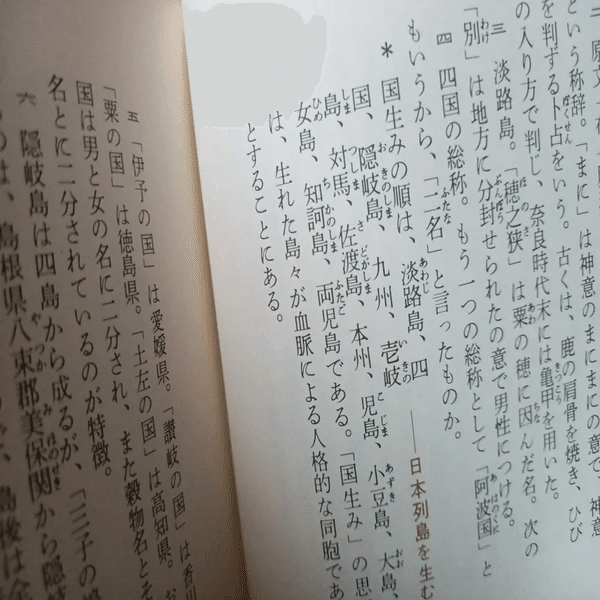 二 原文
という称辞。「まに」は神意のまにまにの意で、神意
を判ずる卜占をいう。古くは、鹿の肩骨を焼き、ひび
の入り方で判じ、奈良時代末には亀甲を用いた。
三 淡路島。「穂之狭」は粟の穂に因んだ名。次の
「別」は地方に分封せられたの意で男性につける。
四 四国の総称。もう一つの総称として「阿波国」と
もいうから、「二名」と言ったものか。
――日本列島を生む
* 国生みの順は、淡路島、四
国、隠岐島、九州、壱岐
島、対馬、佐渡島、本州、児島、小豆島、大島、
女島、知訶島、両児島である。「国生み」の思
は、生れた島々が血脈による人格的な同胞であ
とすることにある。
五 「伊予の国」は愛媛県。「讃岐の国」は香川
「粟の国」は徳島県。「土左の国」は高知県。お
国は男と女の名に二分され、また穀物名とそ
名とに二分されているのが特徴。
六 隠岐島は四島から成るが、「三子の
のは、島根県八束郡美保関から隠岐
島後は全